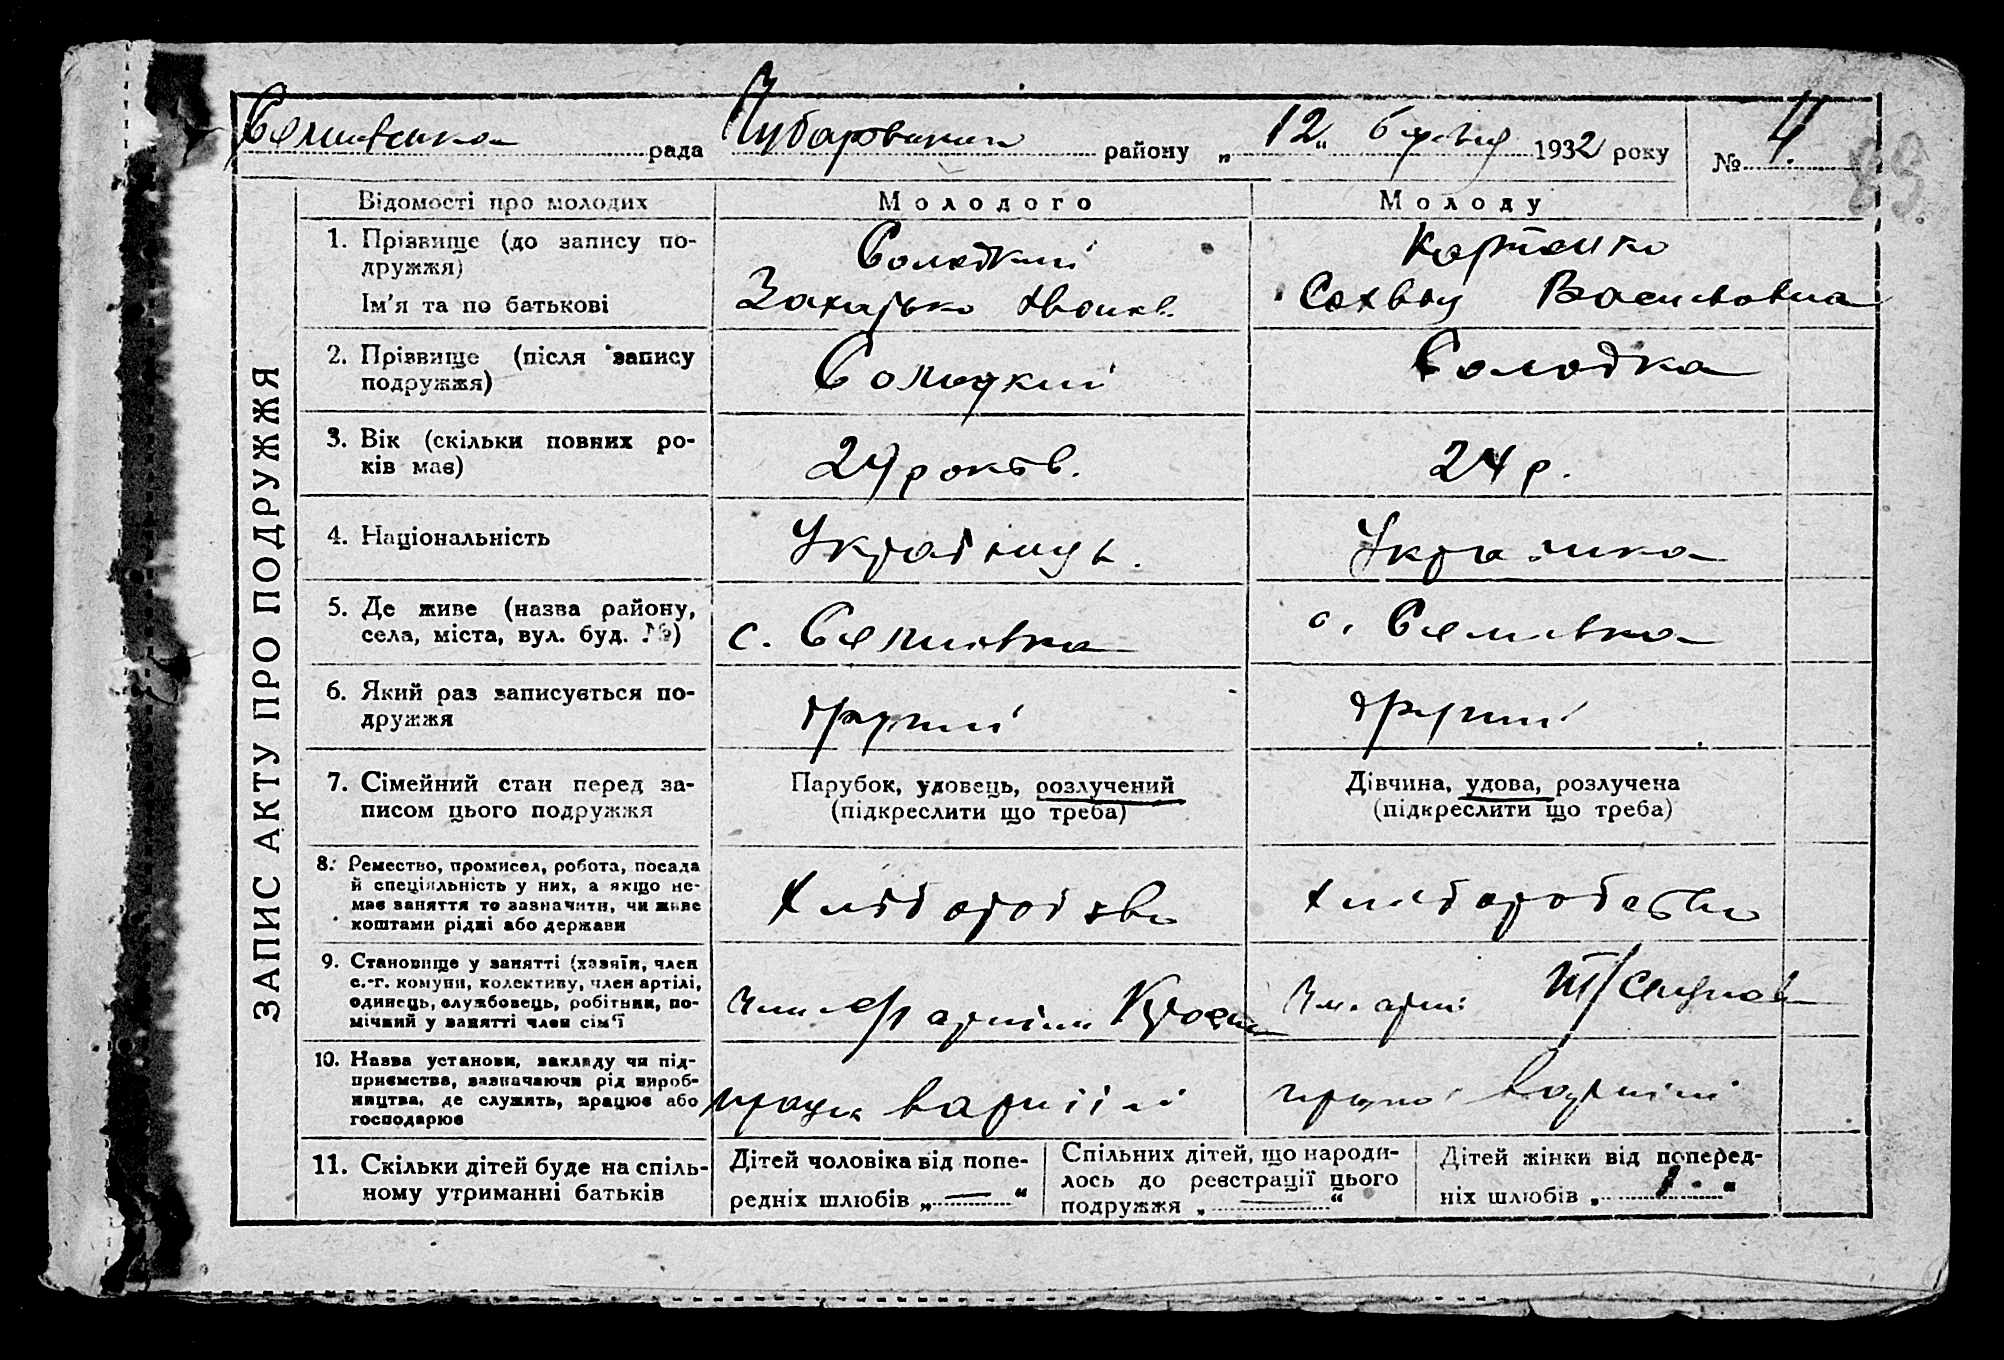 Семивська рада Чубарівський району „12“ березня 1932 року № 4
89.
ЗАПИС АКТУ ПРО ПОДРУЖЖЯ
Відомості про молодих Молодого Молоду
1. Прізвище (до запису подружжя) Солодкий
Ім'я та по батькові Василівна
2. Прізвище (після запису подружжя) Солодкий Солодка
3. Вік (скільки повних років має) 24 років. 24 р.
4. Національність Українець. Українка
5. Де живе (назва району, села, міста, вул. буд. №) с. Семивка с. Семивка
6. Який раз записується подружжя другий другий
7. Сімейний стан перед записом цього подружжя Парубок, удовець, розлучений (підкреслити що треба) Дівчина, удова, розлучена (підкреслити що треба)
8. Ремество, промисел, робота, посада й спеціяльність у них, а якщо немає заняття то зазначити, чи живе коштами рідні або держави Хліборобство Хліборобство
9. Становище у занятті (хазяїн, член с.-г. комуни, колективу, член артілі, одинець, службовець, робітник, помічний у занятті член сім'ї
10. Назва установи, закладу чи підприємства, зазначаючи рід виробництва, де служить, працює або господарює працює в артілі працює в артілі
11. Скільки дітей буде на спільному утриманні батьків Дітей чоловіка від попередніх шлюбів „—“ Спільних дітей, що народилось до реєстрації цього подружжя „—“ Дітей жінки від попередніх шлюбів „1“